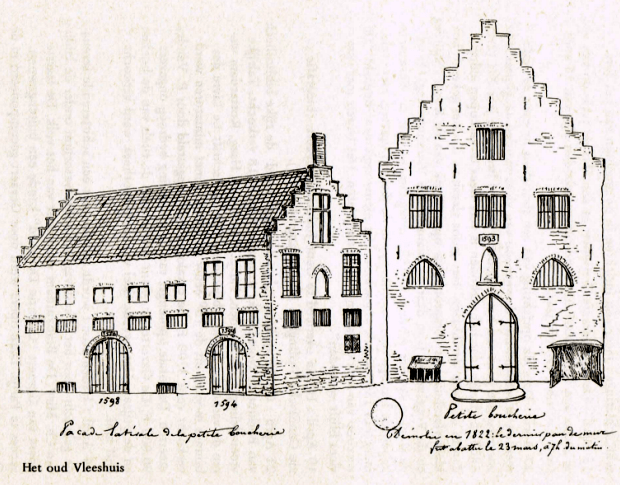 1593
1598
1594
Façade latérale de la petite boucherie
Petite boucherie
Démolie en 1822: le dernier pan de mur
fut abattu le 23 mars, à 7h. du matin.
Het oud Vleeshuis